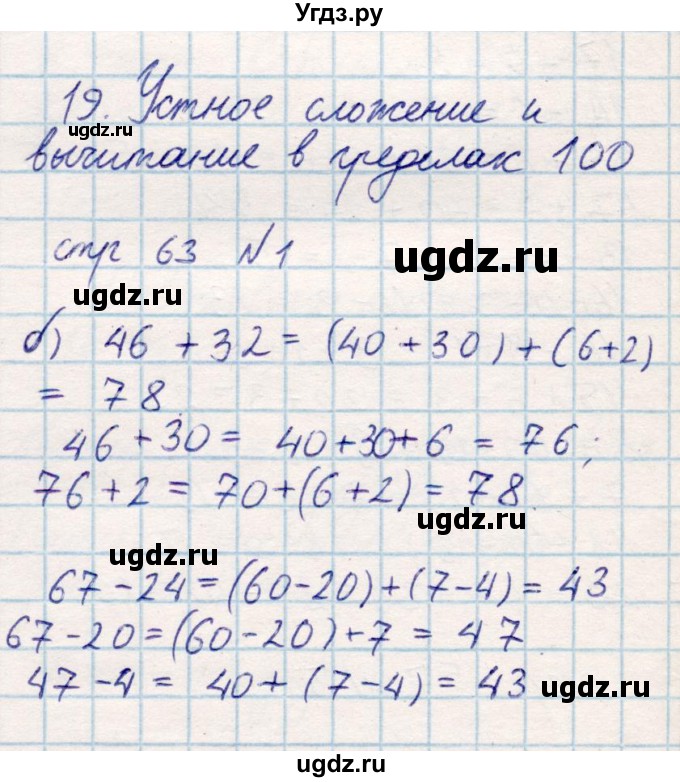 Угдз.ру
19. Устное сложение и
ugdz.ru
вычитание в пределах 100
стр 63 №1
ugdz.ru
ugdz.ru
б) 46 + 32 = (40 + 30) + (6+2)
= 78
46 + 30 = 40+30+6 = 76;
76 + 2 = 70+(6+2) = 78
ugdz.ru
ugdz.ru
67 - 24 = (60-20)+(7-4) = 43
67 - 20 = (60-20)+7 = 47
47 - 4 = 40+ (7-4) = 43
ugdz.ru
ugdz.ru